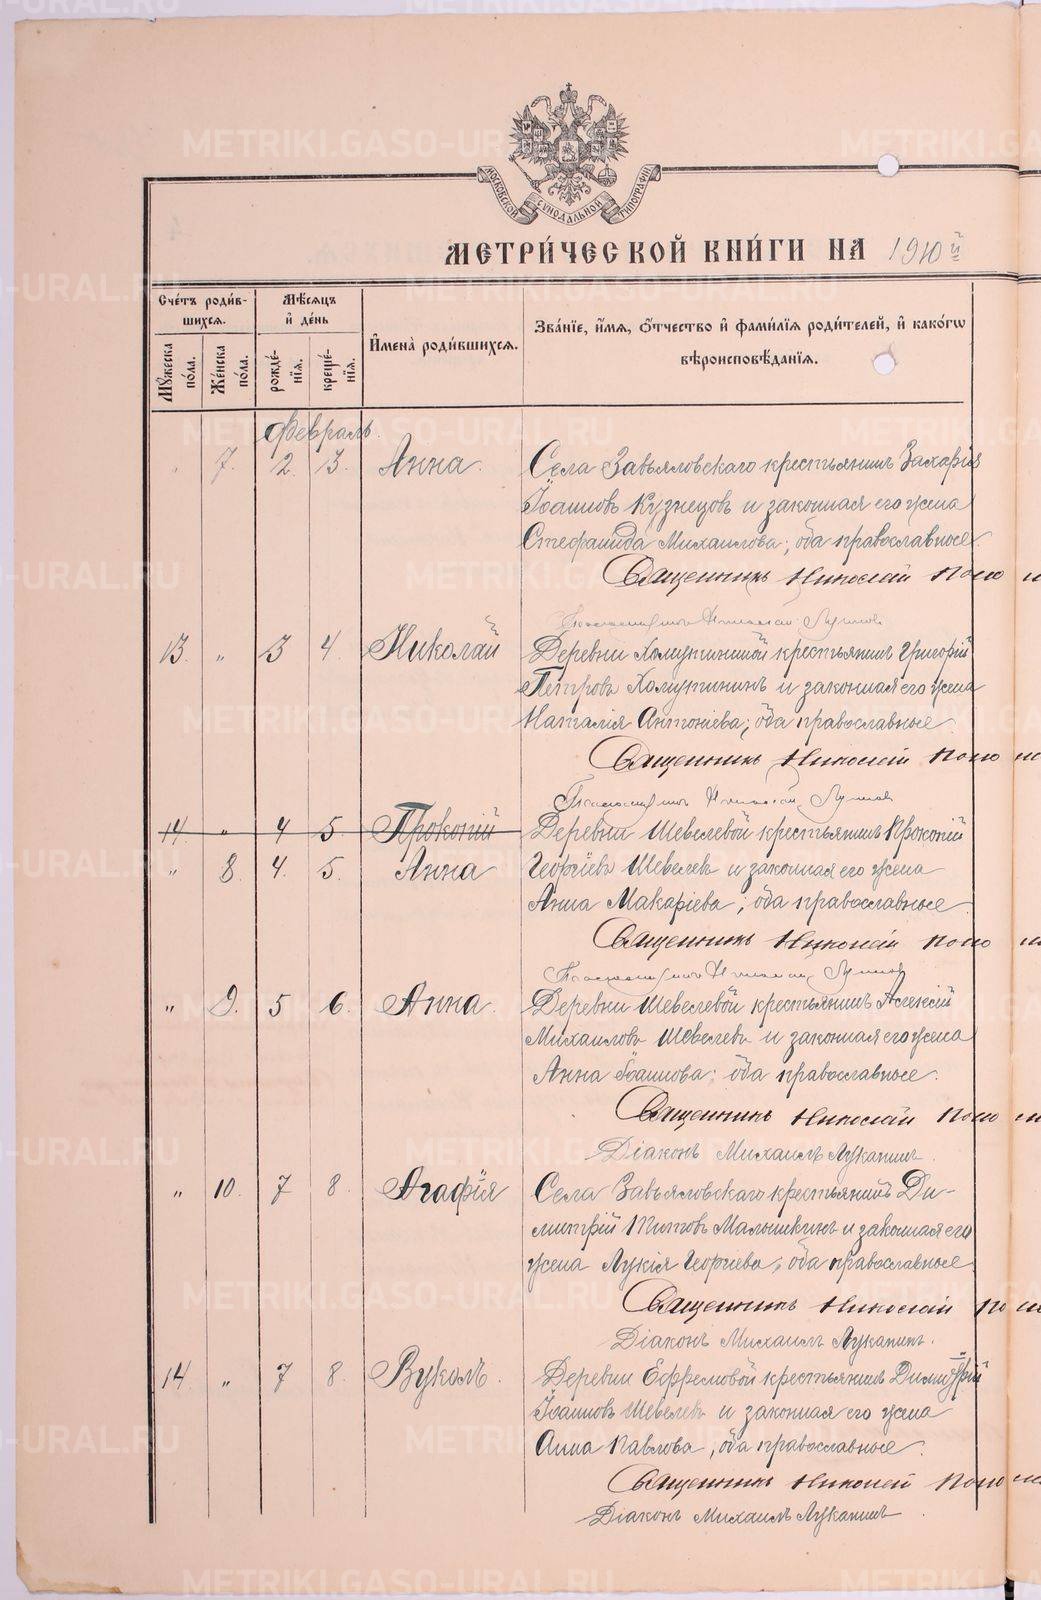 МОСКОВСКОЙ СѴНОДАЛЬНОЙ ТИПОГРАФІИ
МЕТРИ́ЧЕСКОЙ КНИ́ГИ НА 1910 й
Сче́тъ роди́вшихся.
Мѣ́сяцъ и҆ де́нь
И҆мена̀ роди́вшихся.
Зва́нїе, и҆́мя, ѻ҆́тчество и҆ фами́лїя роди́телей, и҆ како́гѡ вѣроисповѣ́данїя.
Мꙋ́жеска по́ла.
Же́нска по́ла.
рожде́нїя.
креще́нїя.
Февраль.
" 7. 2. 3. Анна. Села Завьяловскаго крестьянинъ Захарія
Іоанновъ Кузнецовъ и законная его жена
Стефанида Михаилова; оба православные.
Священникъ Николай Поно
13. " 3 4. Николай Деревни Хомутининой крестьянинъ Григорій
Петровъ Хомутининъ и законная его жена
Наталія Антоніева; оба православные.
Священникъ Николай Поно
14 " 4 5. Прокопій Деревни Шевелевой крестьянинъ Прокопій
" 8. 4. 5. Анна Георгіевъ Шевелевъ и законная его жена
Анна Макаріева; оба православные.
Священникъ Николай Поно
" 9. 5 6. Анна. Деревни Шевелевой крестьянинъ Алексій
Михаиловъ Шевелевъ и законная его жена
Анна Іоаннова; оба православные.
Священникъ Николай Поно
Діаконъ Михаилъ Лукапинъ.
" 10. 7 8. Агафія Села Завьяловскаго крестьянинъ Ди-
митрій Титовъ Малышкинъ и законная его
жена Лукія Георгіева, оба православные
Священникъ Николай По
Діаконъ Михаилъ Лукапинъ.
14. " 7 8. Вуколъ. Деревни Ефремовой крестьянинъ Димитрій
Іоанновъ Шевелевъ и законная его жена
Анна Павлова, оба православные.
Священникъ Николай Поно
Діаконъ Михаилъ Лукапинъ
METRIKI.GASO-URAL.RU